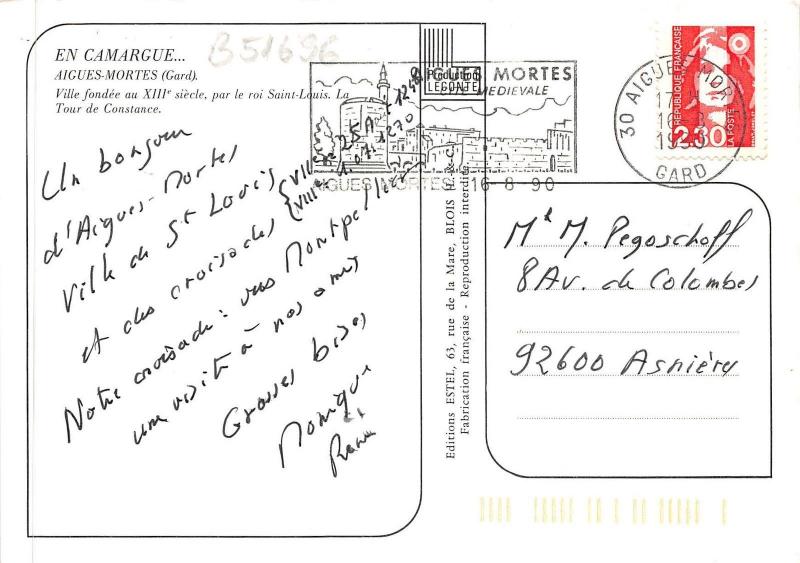 B51696
EN CAMARGUE...
AIGUES-MORTES (Gard).
Ville fondée au XIIIe siècle, par le roi Saint-Louis. La
Tour de Constance.
Production
LECONTE
MORTES
MEDIEVALE
AIGUES MORTES 16-8-90
30 AIGUES MORTES
16-8
GARD
RÉPUBLIQUE FRANÇAISE
LA POSTE
2.30
Un bonjour
d'Aigues-Mortes
Ville de St Louis
et des croisades { VII
VIIIe
25 A 1248
1.07.1270
Notre croisade : vers Montpellier
une visite à nos amis
Grosses bises
Monique
Editions ESTEL, 63, rue de la Mare, BLOIS
Fabrication française - Reproduction interdite
M & M. Pegoschoff
8 Av. de Colombes
92600 Asnières